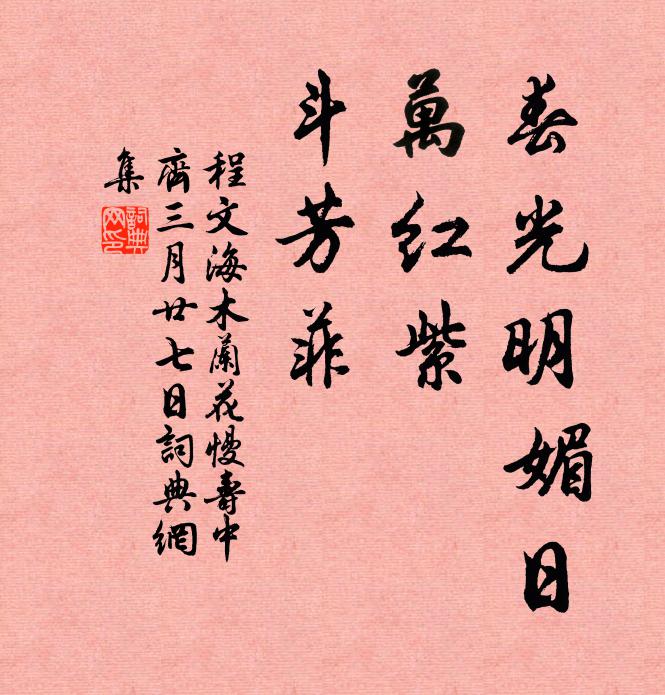 春光明媚日
萬紅紫
斗芳菲
程文海木蘭花慢壽中
齊三月廿七日詞典網
集
詞典
网印